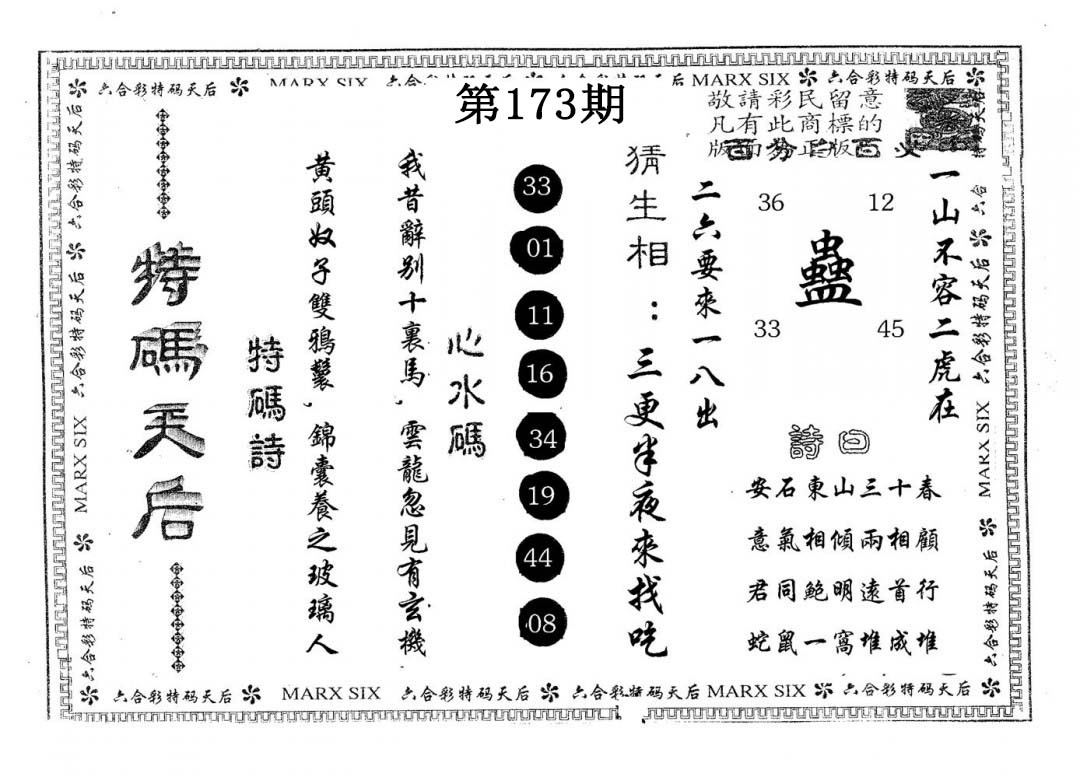 六合彩特码天后 MARX SIX 六合
后 MARX SIX 六合彩特码天后
第173期
敬請彩民留意
凡有此商標的
版面為正版
一山不容二虎在
36 12
蠱
33 45
二六要來一八出
猜生相：三更半夜來找吃
詩曰
安石東山三十春
意氣相傾兩相顧
君同鲍明遠首行
蛇鼠一窩堆成堆
33
01
11
16
34
19
44
08
心水碼
我昔辭别十裏馬，雲龍忽見有玄機
黃頭奴子雙鴉鬟，錦囊養之玻璃人
特碼詩
特碼天后
六合彩特码天后 MARX SIX 六合彩特码天后 六合彩特码天后 MARX SIX 六合彩特码天后
六合彩特码天后 MARX SIX 六合彩特码天后 六合彩特码天后
六合 六合彩特码天后 MARX SIX 六合彩特码天后